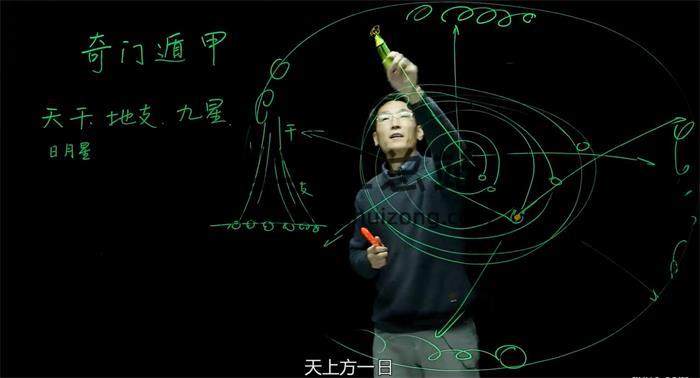 奇门遁甲
天干、地支、九星、
日月星
干
支
huizong.c
天上方一日